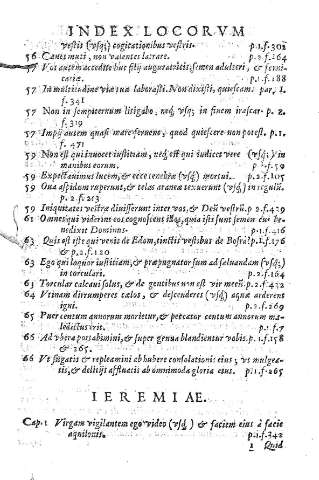 INDEX LOCORVM
vestis (vsq;) cogitationibus vestris. p.1.f.302
56 Canes muti, non valentes latrare. p.2.f.264
57 Vos autem accedite huc filij auguratricis; semen adulteri, & fornicariæ. p.1.f.188
57 In multitudine via tua laborasti. Non dixisti, quiescam. par. 1.
f.341
57 Non in sempiternum litigabo, neq; vsq; in finem irascar. p.2.
f.319
57 Impij autem quasi mare feruens, quod quiescere non potest. p.1.
f.471
59 Non est qui inuocet iustitiam, neq; est qui iudicet vere (vsq;) in
manibus eorum.
59 Expectauimus lucem, & ecce tenebræ (vsq;) mortui. p.2.f.105
59 Oua aspidum ruperunt, & telas araneæ texuerunt (vsq;) in
p.2.f.213
59 Iniquitates vestræ diuiserunt inter vos, & Deũ vestrũ. p.2.f.429
61 Omnes qui viderint eos cognoscent illos, quia isti sunt semen cui benedixit Dominus. p.1.f.416
63 Quis est iste qui venit de Edom, tinctis vestibus de Bosra? p.1.f.176
& p.2.f.120
63 Ego qui loquor iustitiam, & propugnator sum ad saluandum (vsq;)
in torculari. p.2.f.164
63 Torcular calcaui solus, & de gentibus non est vir mecũ. p.2.f.472
64 Vtinam dirumperes cælos, & descenderes (vsq;) aquæ arderent
igni. p.2.f.269
65 Puer centum annorum morietur, & peccator centum annorum maledictus erit. p.1.f.7
66 Ad vbera portabimini, & super genua blandientur vobis. p.1.f.158
& 365.
66 Vt sugatis & repleamini ab vbere consolationis eius; vt mulgeatis, & delicijs affluatis ab omnimoda gloria eius. p.1.f.265
IEREMIAE.
Cap.1 Virgam vigilantem ego video (vsq;) & faciem eius à facie
aquilonis. p.1.f.342
Quid